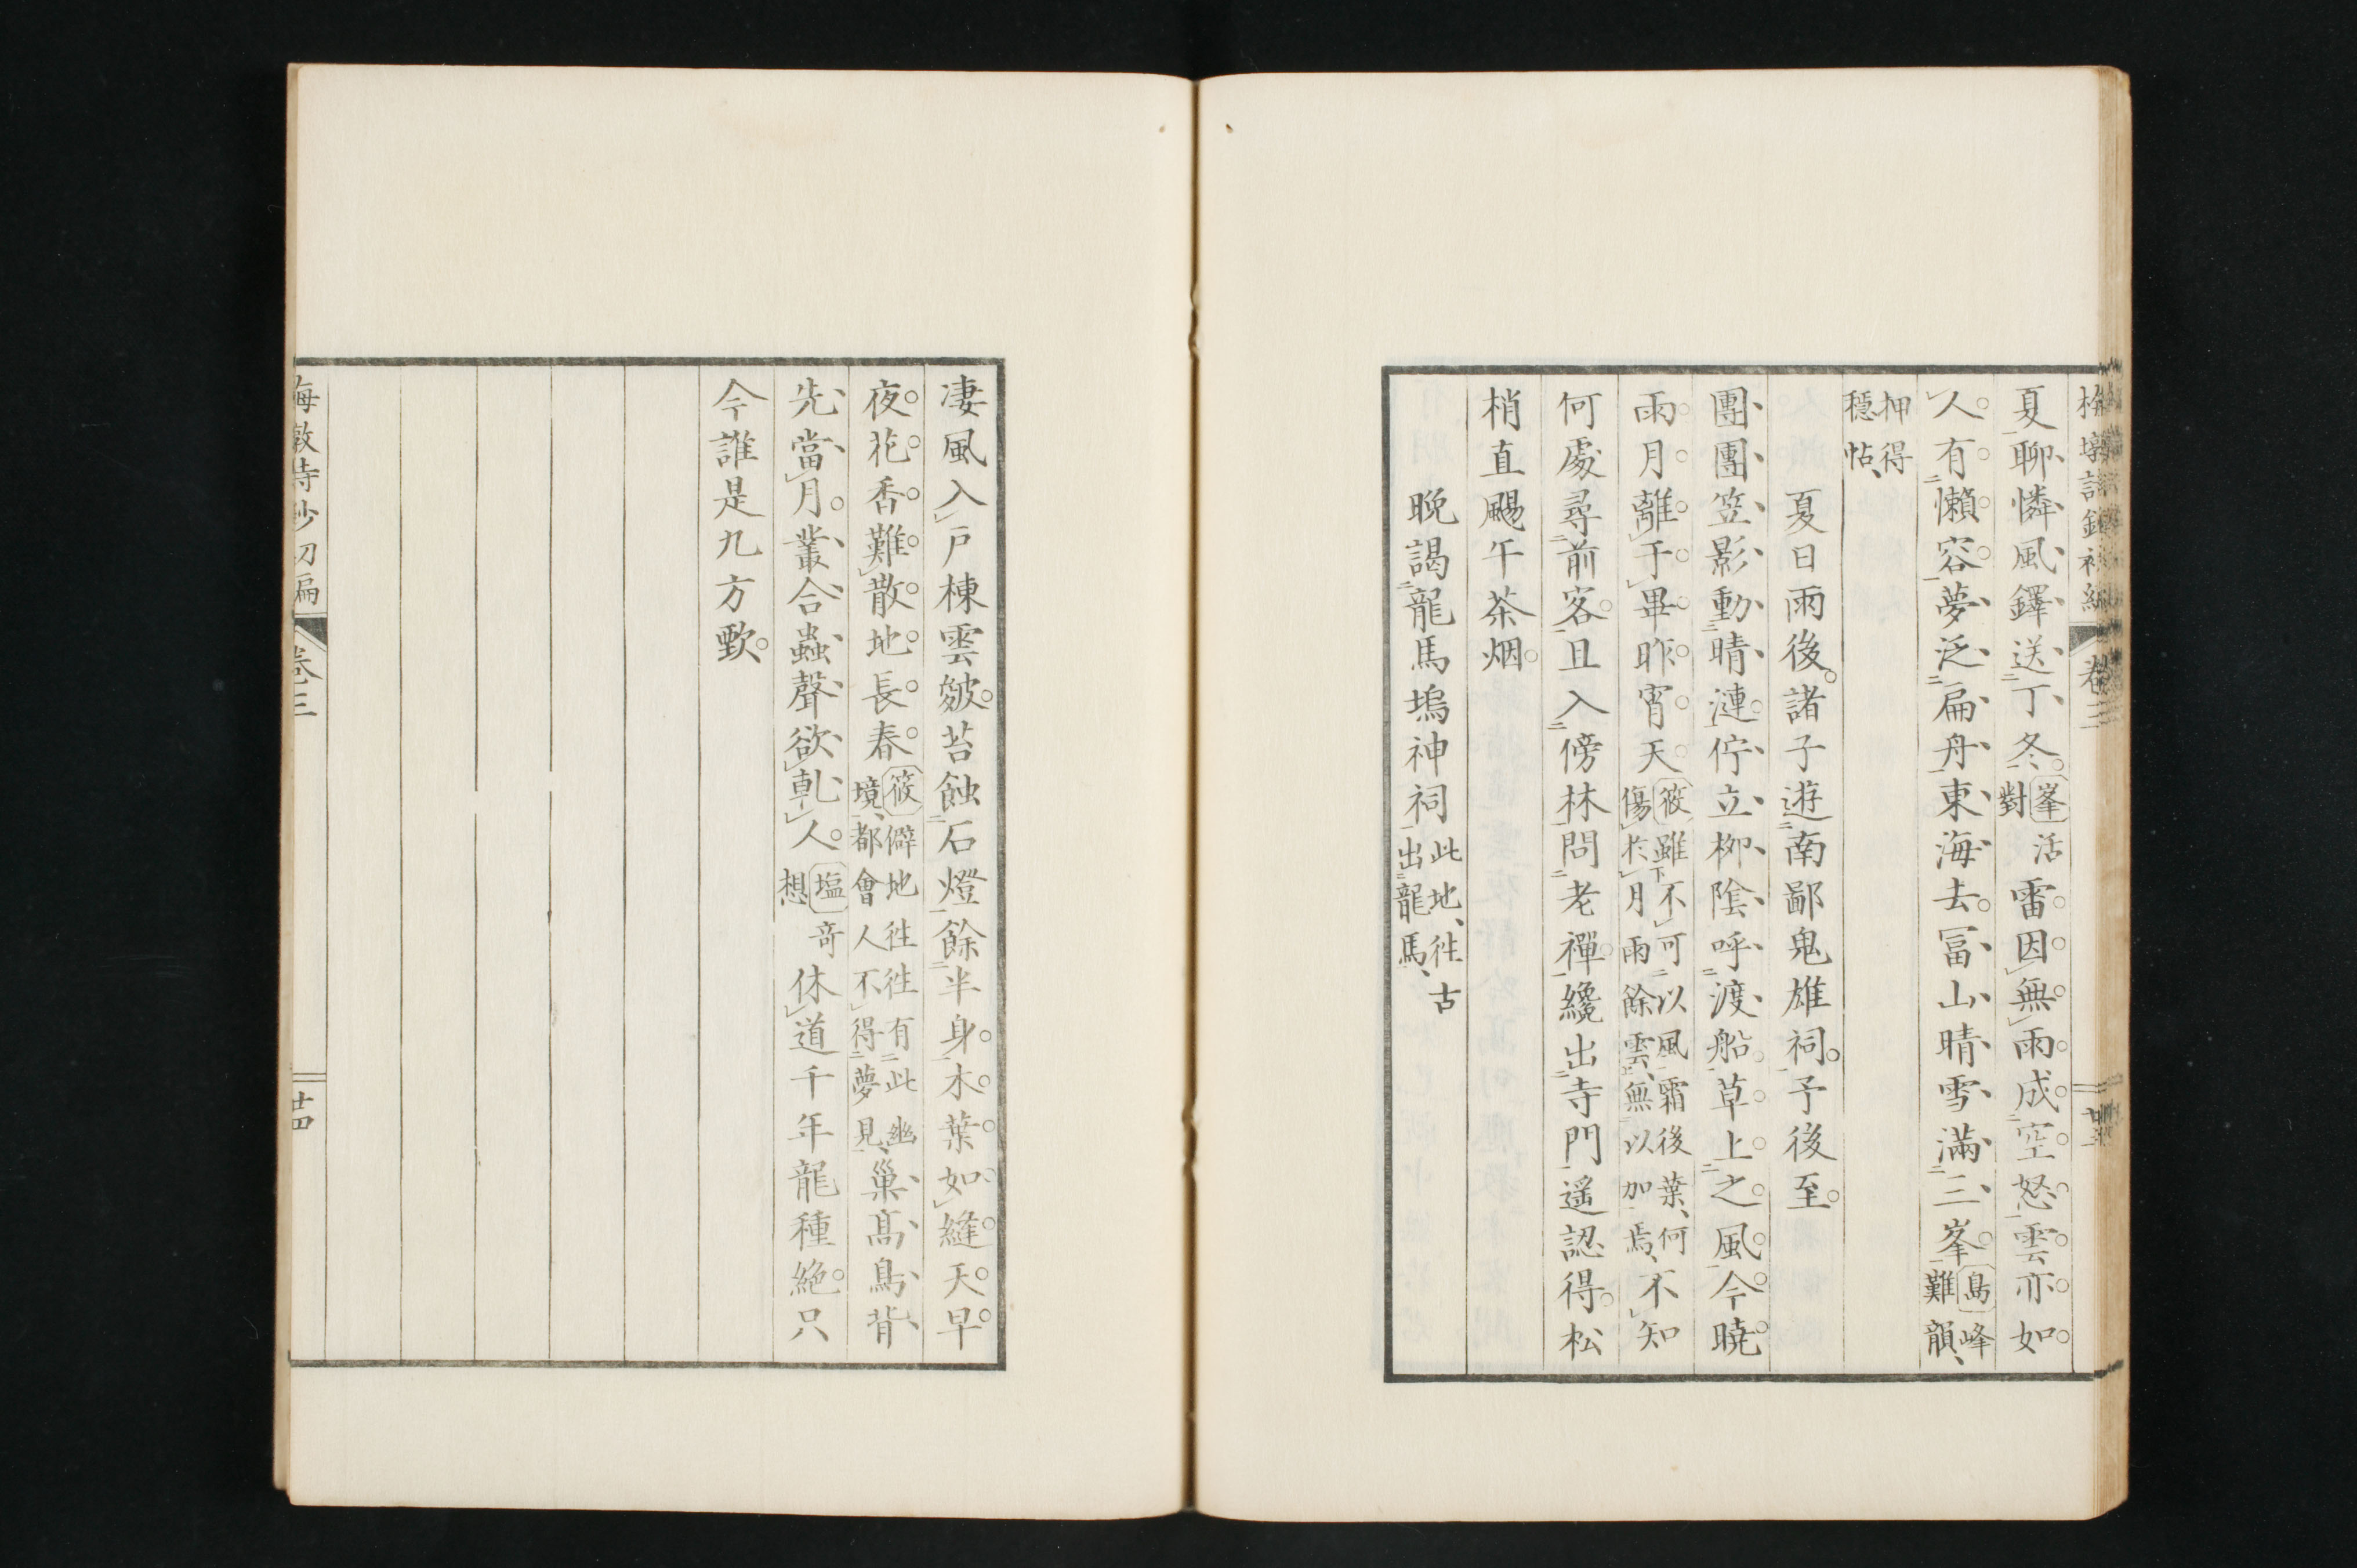 夏聊憐風鐸送丁冬峯活對雷因無雨成空怒雲亦如
人有懶容夢泛扁舟東海去冨山晴雪滿三峯島峰難韻
押得穩帖
夏日雨後諸子遊南鄙鬼雄祠予後至
團團笠影動晴漣佇立柳陰呼渡船草上之風今曉
雨月離于畢昨宵天筱雖不可以風霜後葉何傷於月雨餘雲無以加焉不知
何處尋前客且入傍林問老禪纔出寺門遥認得松
梢直颺午茶烟
晩謁龍馬塢神祠此地往古出龍馬
卷三
凄風入戸棟雲皴苔蝕石燈餘半身木葉如縫天早
夜花香難散地長春筱僻地徃徃有此幽境都會人不得夢見巢高鳥背
先當月叢合蟲聲欲乹人塩奇想休道千年龍種絶只
今誰是九方歅
卷三
廿四